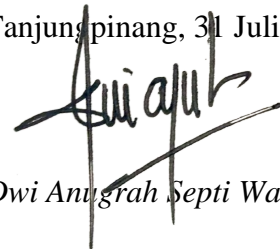 Tanjungpinang, 31 Juli
Dwi Anugrah Septi Wa